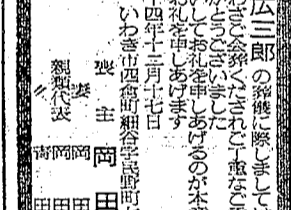 広三郎の葬儀に際しまして
わざご会葬くだされご丁重なご
がとうございました
いしてお礼を申しあげるのが本
お礼を申しあげます
十四年十二月十七日
いわき市四倉町細谷字民野町
喪主 岡田
妻 岡田
親類代表 岡田
〃 斉田